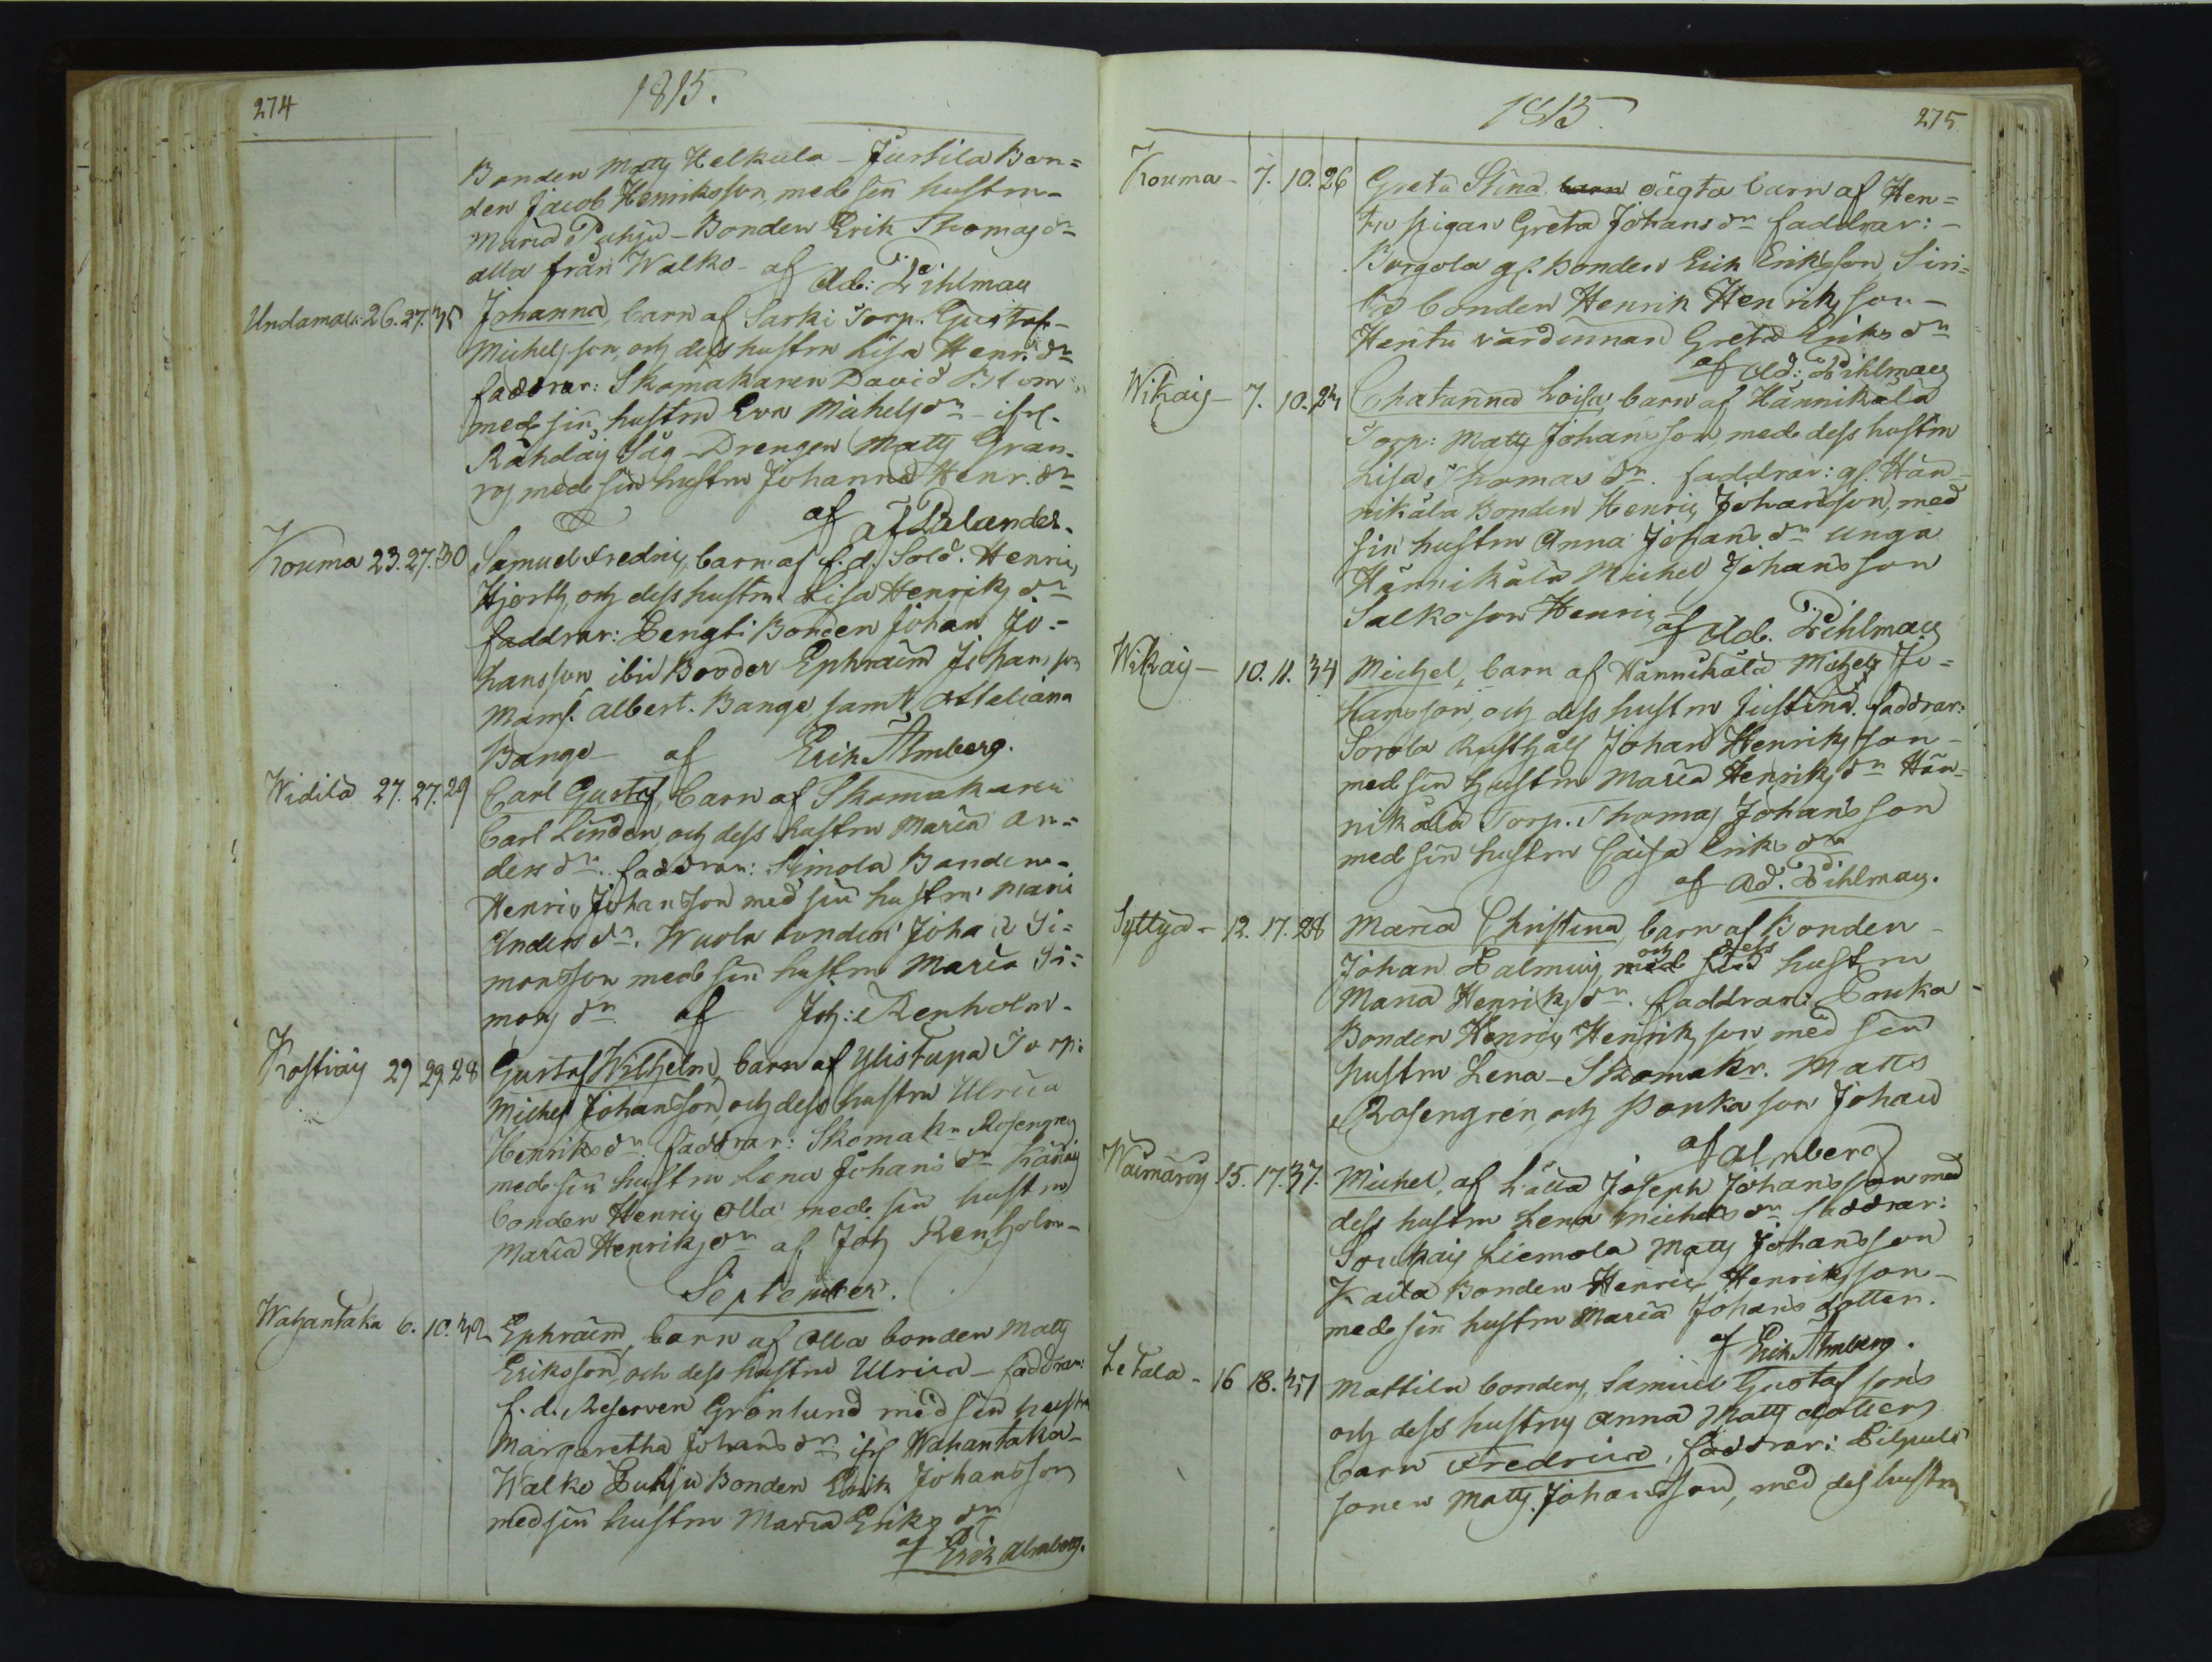 274
1815.
Bonden Matts Helkula - Justila Bon=
den Jacob Henriksson, med sin hustru
Maria Puhju - Bonden Erik Thomas dr
alla från Walko - af Ad: Pihlman
Undamala 26. 27. 35 Johanna, barn af Sarki Torp. Gustaf
Michelsson, och dess hustru Lisa Henr. dr
faddrar: Skomakaren David Blom
med sin hustru Eva Michels dr
Såg-Drengen Matts Gran-
ros med sin hustru Johanna Henr. dr
af A: Palander.
Kouma 23. 27. 30 Samuel Fredric, barn af f.d. Sold. Henric
Hjorth, och dess hustru Lisa Henriks dr
faddrar: Pengti Bonden Johan Jo=
hansson ibid Brodor Ephraim Johansson
Mams. Albert. Bange samt
Bange - af Erik Almberg.
Widila 27. 27. 29 Carl Gustaf, barn af Skomakaren
Carl Linden, och dess hustru Maria An=
ders dr. faddrar: Simola Bonden
Henric Johansson med sin hustru Maria
Anders dr. Wuola bonden Johan Si=
monsson med sin hustru Maria Si=
mons dr af Joh: Renholm -
Kostiais 29 29. 28 Gustaf Wilhelm, barn af Ylistupa Torp:
Michel Johansson, och dess hustru Ulrica
Henriks dr. faddrar: Skomakr Rosengren
med sin hustru Lena Johans dr
bonden Henric Olla med sin hustru
Maria Henriks dr af Joh Renholm -
September.
Wahantaka 6. 10. 32 Ephraim, barn af Olla bonden Matts
Eriksson, och dess hustru Ulrica - faddrar:
f.d. Reserven Grönlund med sin hustru
Margaretha Johans dr ifrå Wahantaka -
Walko Puhju Bonden Erik Johansson
med sin hustru Maria Eriks dr
af Erik Almberg.
1815.
275
Kouma - 7. 10. 26 Greta Stina barn oägta barn af Hen=
tu pigan Greta Johans dr faddrar: -
Borgola gl. Bonden Erik Eriksson, Siri=
lä bonden Henrik Henriksson -
Hentu värdinnan Greta Eriks dr
af Ad: Pihlman
Wikais - 7. 10. 24 Chatarina Loisa, barn af Hännikälä
Torp: Matts Johansson, med dess hustru
Lisa Thomas dr. faddrar: gl. Hän-
nikälä Bonden Henric Johansson, med
sin hustru Anna Johans dr unga
Hännikälä Michel Johansson
Salko son Henric
af Ad. Pihlman
Wikais - 10. 11. 34 Michel, barn af Hännikälä Michels Jo=
hansson, och dess hustru Justina. faddrar:
Sorola Rusthåll Johan Henriksson -
med sin hustru Maria Henriks dr Hän-
nikälä Torp. Thomas Johansson
med sin hustru Caisa Eriks dr
af Ad. Pihlman.
Syttyä - 12. 17. 28 Maria Christina, barn af Bonden -
Johan Palmuis, med sin och dess hustru
Maria Henriks dr. faddrar: Pouka -
Bonden Henric Henriksson med sin
hustru Lena - Skomakr. Matts
Rosengren och Pouka son Johan
af Almberg
15. 17. 37. Michel, af Joseph Johansson med
dess hustru Lena Michels dr faddrar:
Soukais Liemola Matts Johansson
Kaila Bonden Henric Henriksson -
med sin hustru Maria Johans dotter.
af Erik Almberg.
Letala - 16 18. Mattila bondens Samuel Gustafsons
och dess hustrus Anna Matts dotters
barn Fredrica, faddrar:
sonen Matts Johansson, med des hustru